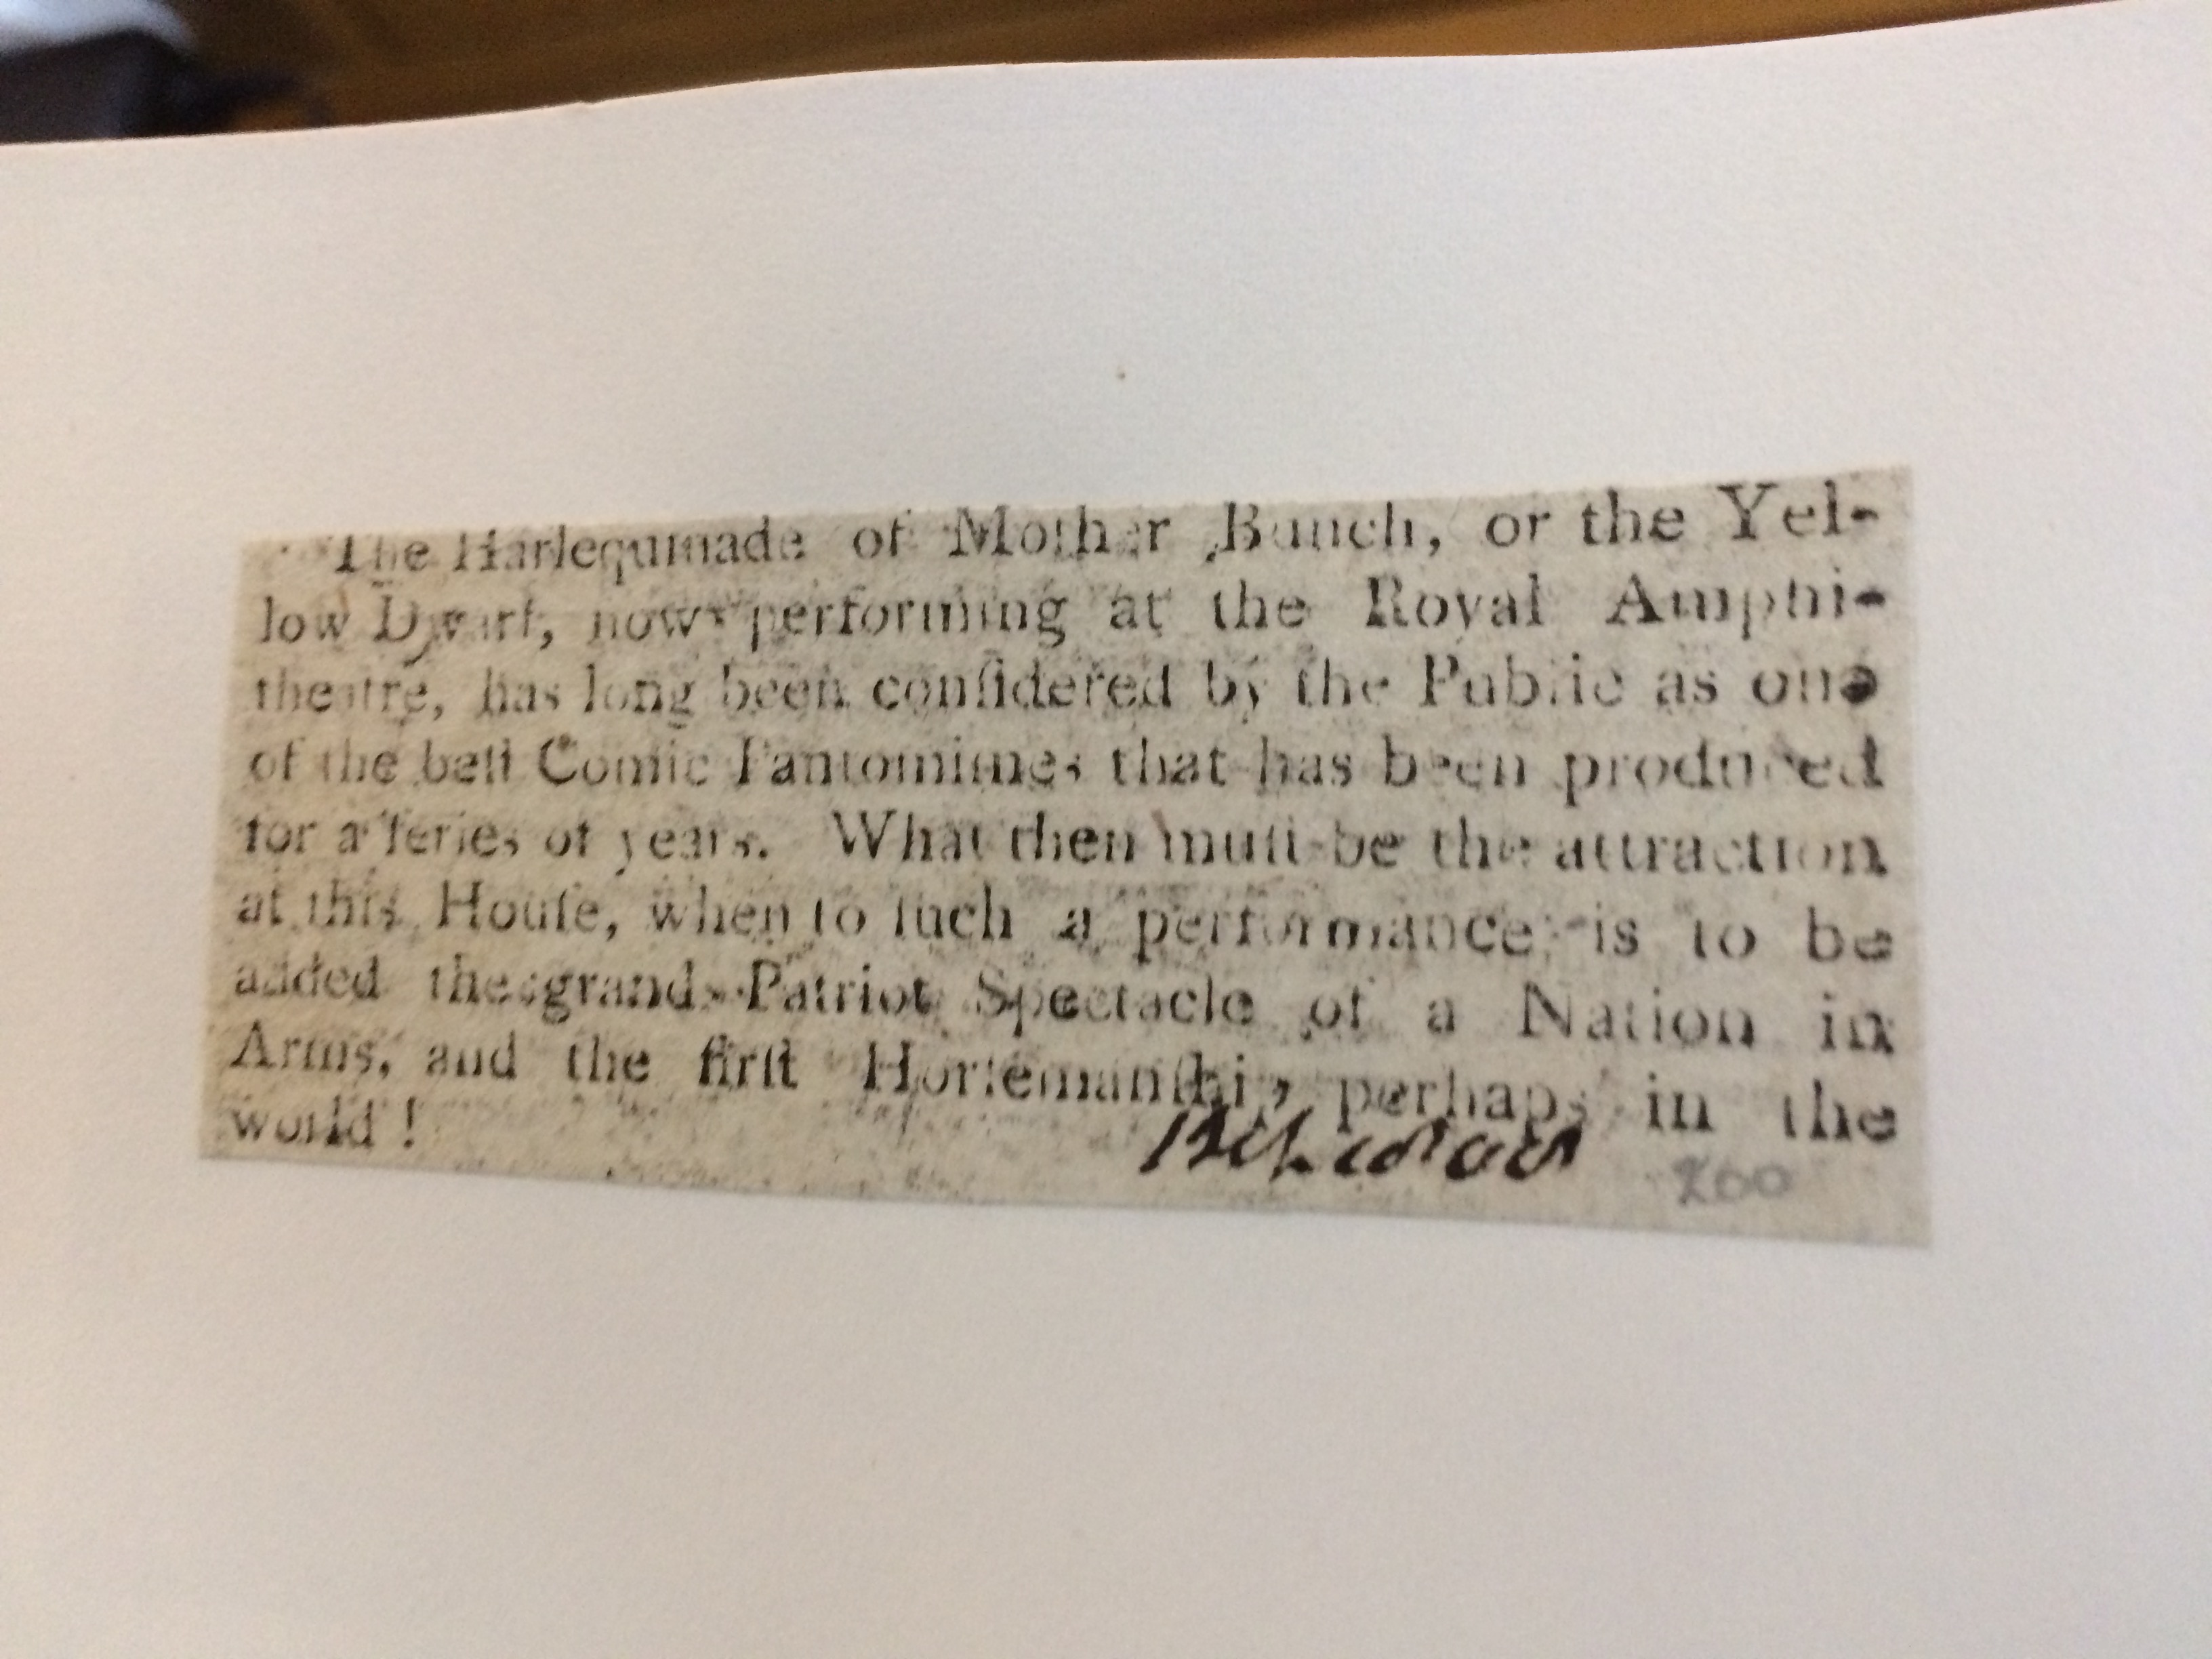 The Harlequinade of Mother Bunch, or the Yel-
low Dwarf, now performing at the Royal Amphi-
theatre, has long been conſidered by the Public as one
of the beſt Comic Pantomimes that has been produced
for a ſeries of years. What then muſt be the attraction
at this Houſe, when to ſuch a performance is to be
added the grand Patriot Spectacle of a Nation in
Arms, and the firſt Horſemanſhip perhaps in the
world!
200